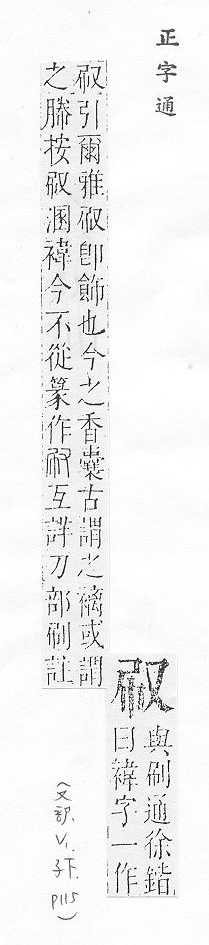 正字通
㕞
與刷通徐鍇
曰褘字一作
㕞引爾雅㕞即飾也今之香囊古謂之褵或謂
之幐按㕞溷褘今不從篆作㕞互詳刀部刷註
(又部.
V1.
子下.
P115)